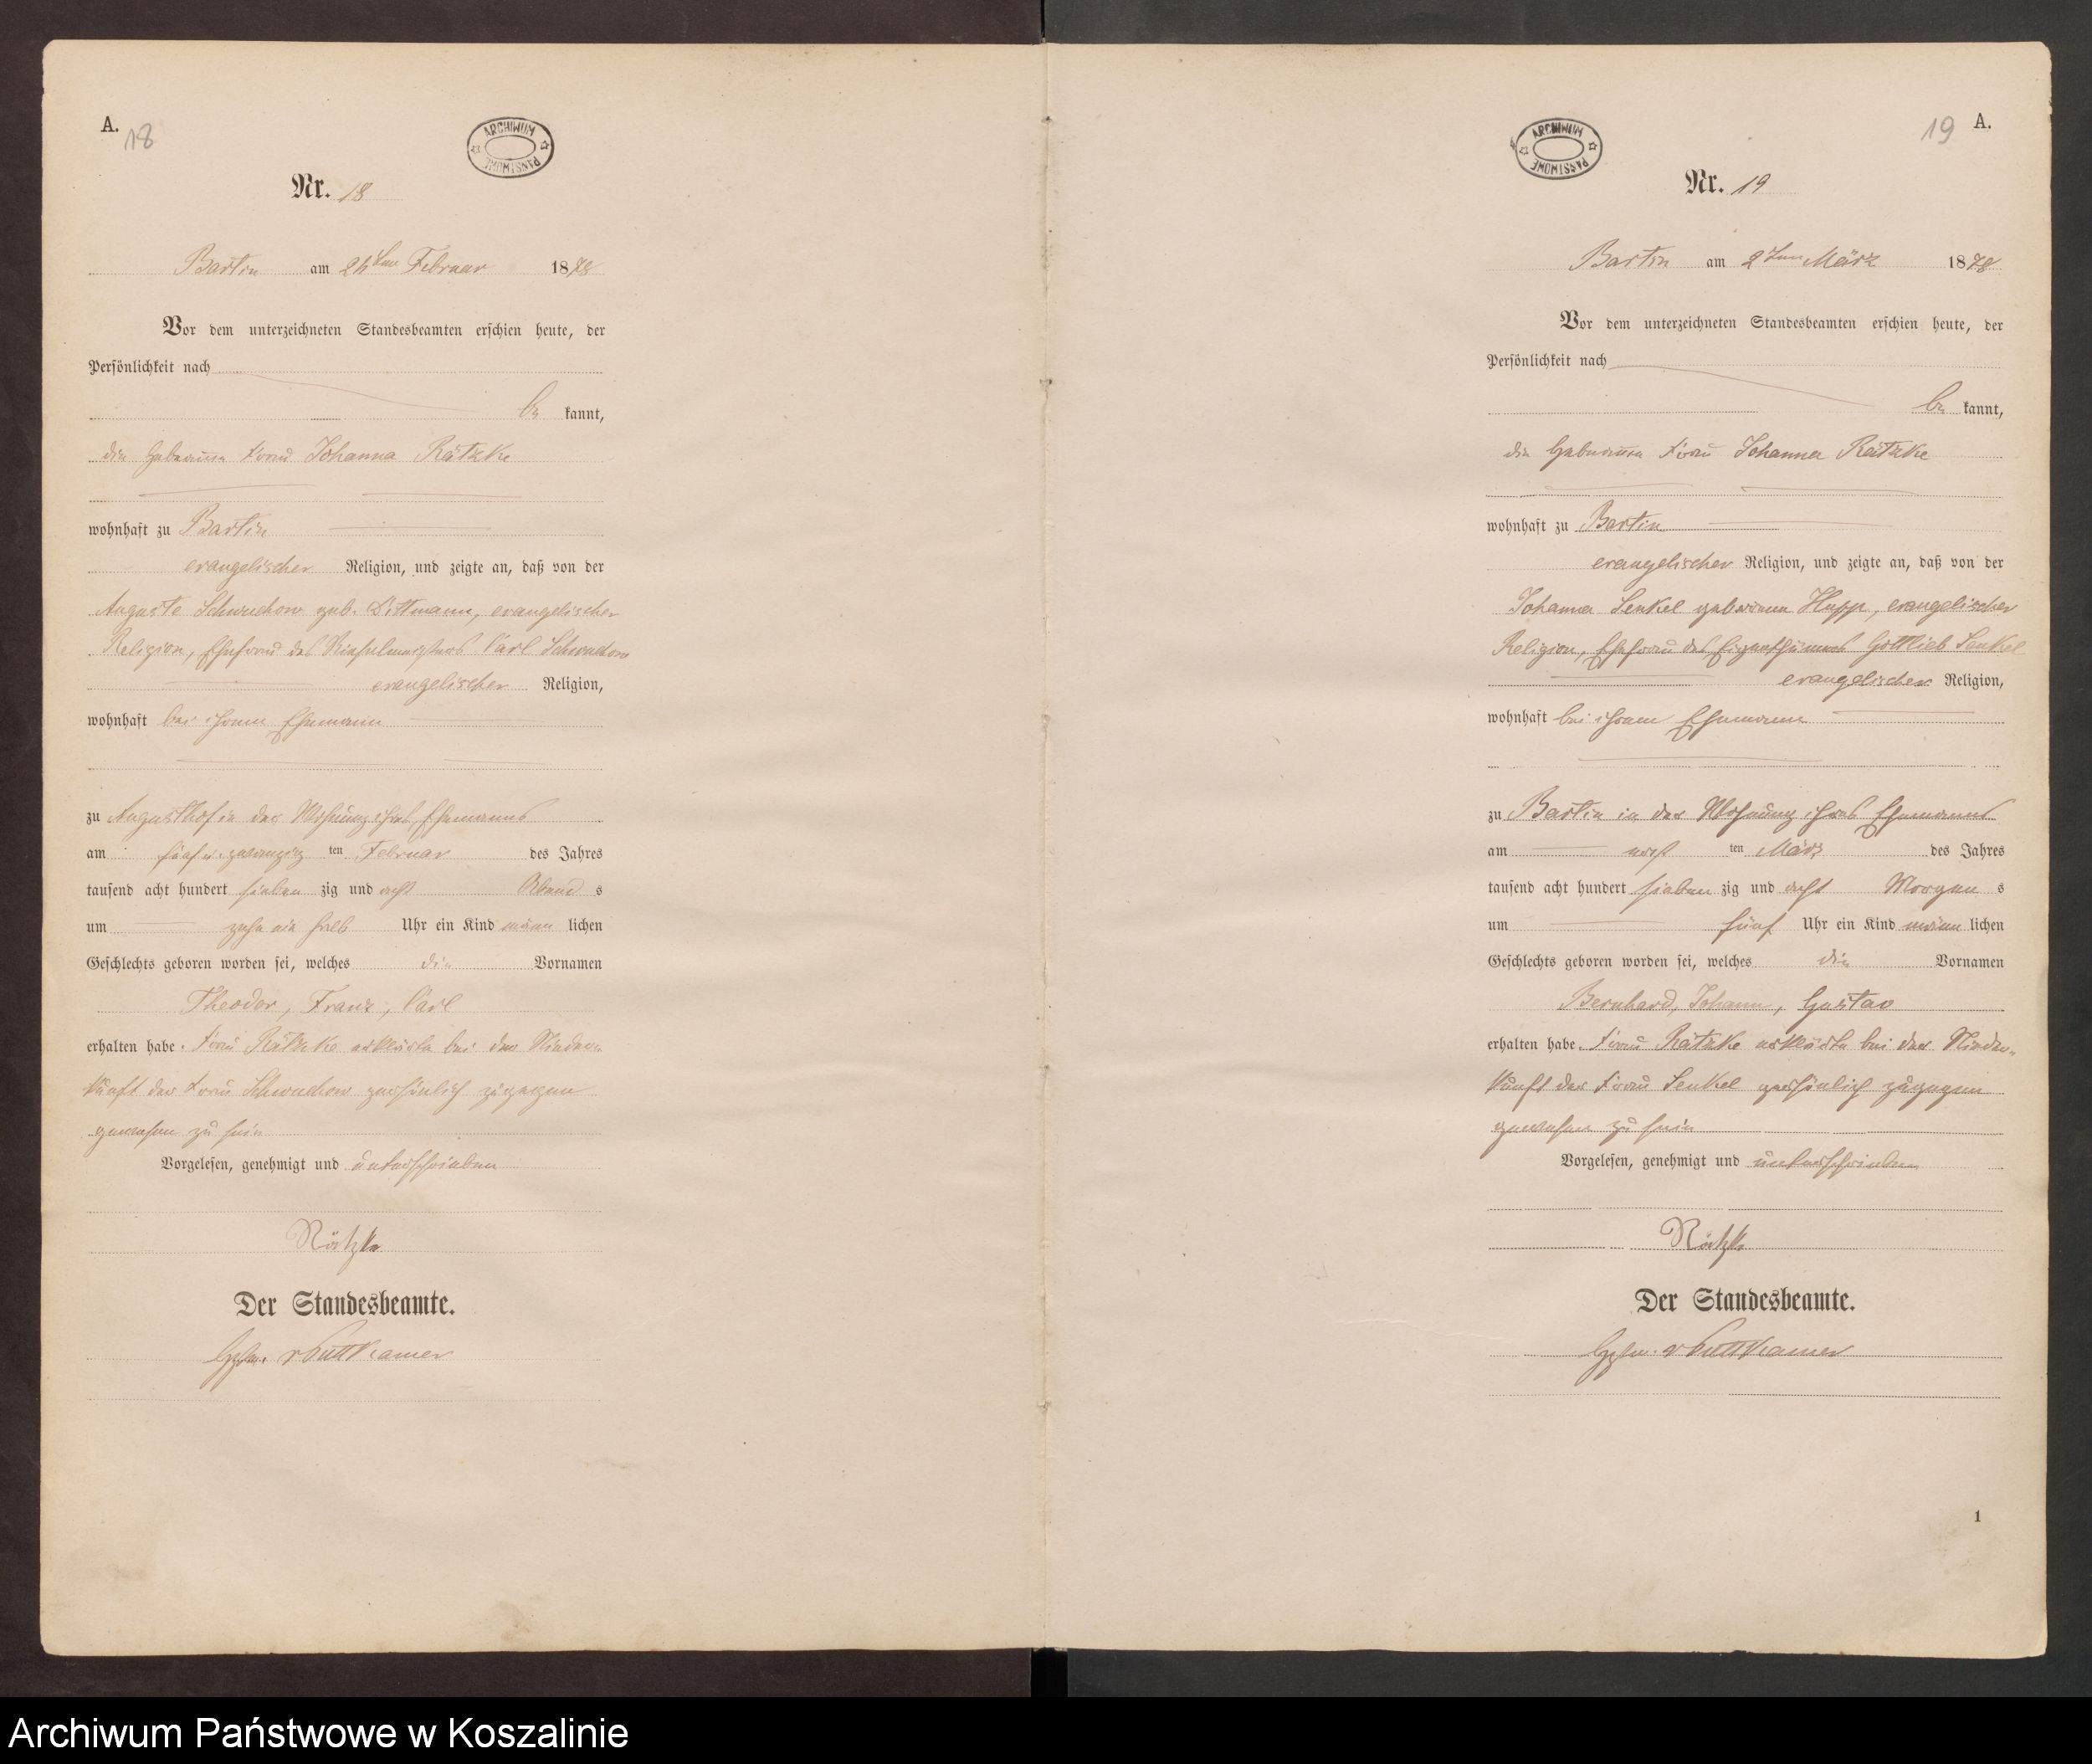 A.
18
ARCHIWUM PAŃSTWOWE
Nr. 18
Bartin am 26ten Februar 1878
Vor dem unterzeichneten Standesbeamten erschien heute, der
Persönlichkeit nach
be kannt,
die Hebamme Frau Johanna Rätzke
wohnhaft zu Bartin
evangelischer Religion, und zeigte an, daß von der
Auguste Schwuchow geb. Dittmann, evangelischer
Religion, Ehefrau des Rieselmeisters Carl Schwuchow
evangelischer Religion,
wohnhaft bei ihrem Ehemann
zu Augusthof in der Wohnung ihres Ehemanns
am fünf u. zwanzig ten Februar des Jahres
tausend acht hundert sieben zig und acht Abend s
um zehn ein halb Uhr ein Kind männ lichen
Geschlechts geboren worden sei, welches die Vornamen
Theodor, Franz, Carl
erhalten habe. Frau Rätzke erklärte bei der Nieder-
kunft der Frau Schwuchow persönlich zugegen
gewesen zu sein
Vorgelesen, genehmigt und unterschrieben
Rätzke
Der Standesbeamte.
v Puttkamer
19
A.
ARCHIWUM PAŃSTWOWE
Nr. 19
Bartin am 8ten März 1878
Vor dem unterzeichneten Standesbeamten erschien heute, der
Persönlichkeit nach
be kannt,
die Hebamme Frau Johanna Rätzke
wohnhaft zu Bartin
evangelischer Religion, und zeigte an, daß von der
Johanna Senkel geborenen Hupp, evangelischer
Religion, Ehefrau des Eigenthümers Gottlieb Senkel
evangelischer Religion,
wohnhaft bei ihrem Ehemann
zu Bartin in der Wohnung ihres Ehemanns
am acht ten März des Jahres
tausend acht hundert sieben zig und acht Morgen s
um fünf Uhr ein Kind männ lichen
Geschlechts geboren worden sei, welches die Vornamen
Bernhard, Johann, Gustav
erhalten habe. Frau Rätzke erklärte bei der Nieder-
kunft der Frau Senkel persönlich zugegen
gewesen zu sein
Vorgelesen, genehmigt und unterschrieben
Rätzke
Der Standesbeamte.
v Puttkamer
1
Archiwum Państwowe w Koszalinie